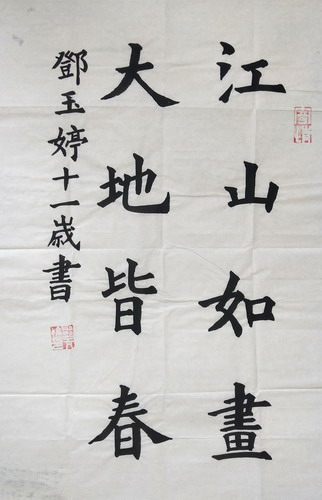 江山如畫
大地皆春
鄧玉婷十一歲書